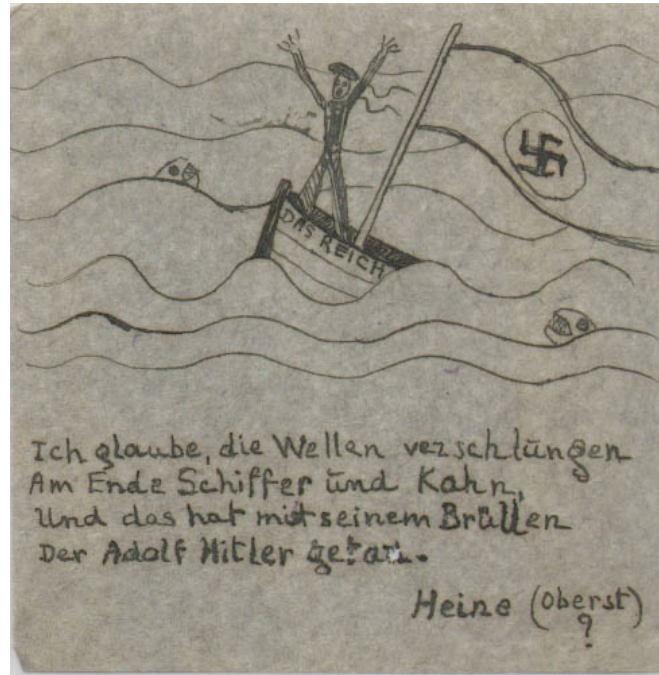 DAS REICH
Ich glaube, die Wellen verschlüngen
Am Ende Schiffer und Kahn,
Und das hat mit seinem Brüllen
Der Adolf Hitler getan.
Heine (Oberst)
?